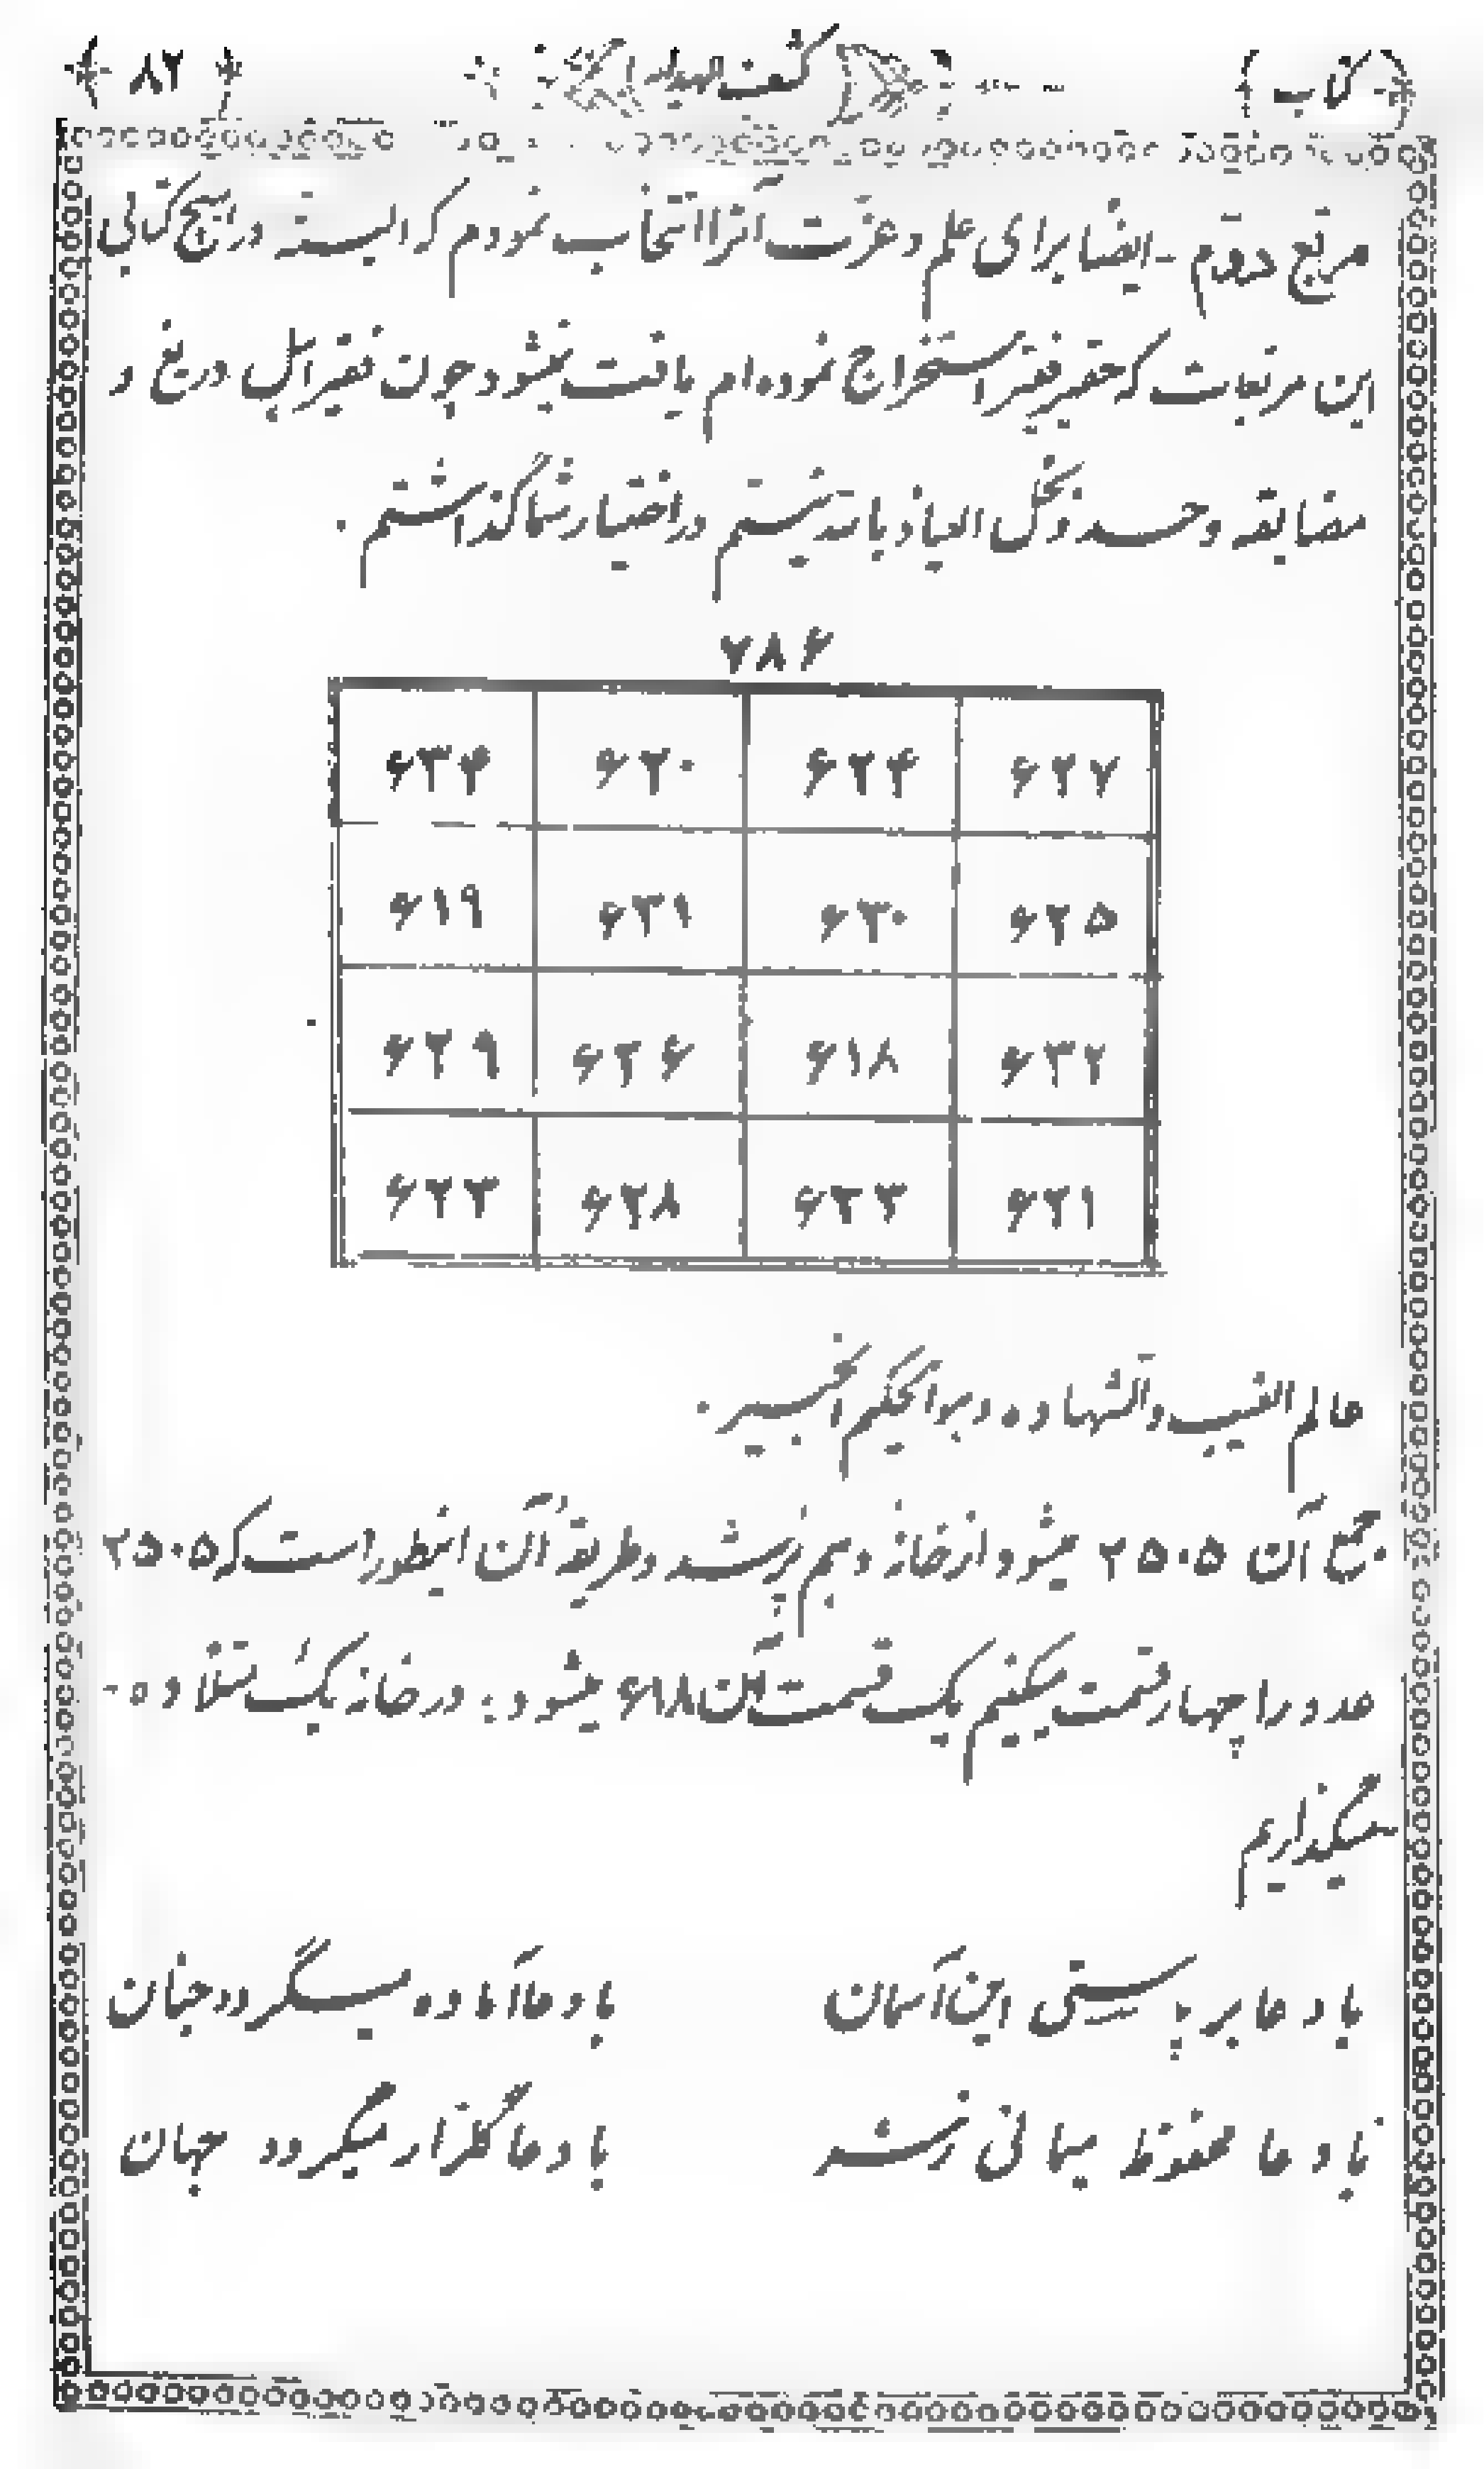 (کتاب) کشف الهدایه (۸۲)
مربع دوم - ایضا برای علم و عزت آنرا انتخاب نمودم که البسته در هیچ کتابی
این مربعات که حقیر فقیر استخراج نموده‌ام یافت نمیشود چون فقیر اہل دریغ و
مضایقه و حسد و بخل العیاذ باللہ نیستم در اختیار شما گذاشتم .
۷۸۶
۶۳۴ ۶۲۰ ۶۲۴ ۶۲۷
۶۱۹ ۶۳۱ ۶۳۰ ۶۲۵
۶۲۹ ۶۲۶ ۶۱۸ ۶۳۲
۶۲۳ ۶۲۸ ۶۳۳ ۶۲۱
عالم الغیب والشهاده وهوالحکیم الخبیر .
جمع آن ۲۵۰۵ میشود از خانه دہم پر شد و طریقه آن اینطور است که ۲۵۰۵
عدد را چهار قسمت میکنیم یک قسمت آن ۶۱۸ میشود : در خانه یک نقلا ده -
میگذاریم
با دعا بر پا ستی این آسمان با دعا آماده میگردد جنان
با دعا محفوظ میمانی ز شر با دعا گلزار میگردد جهان